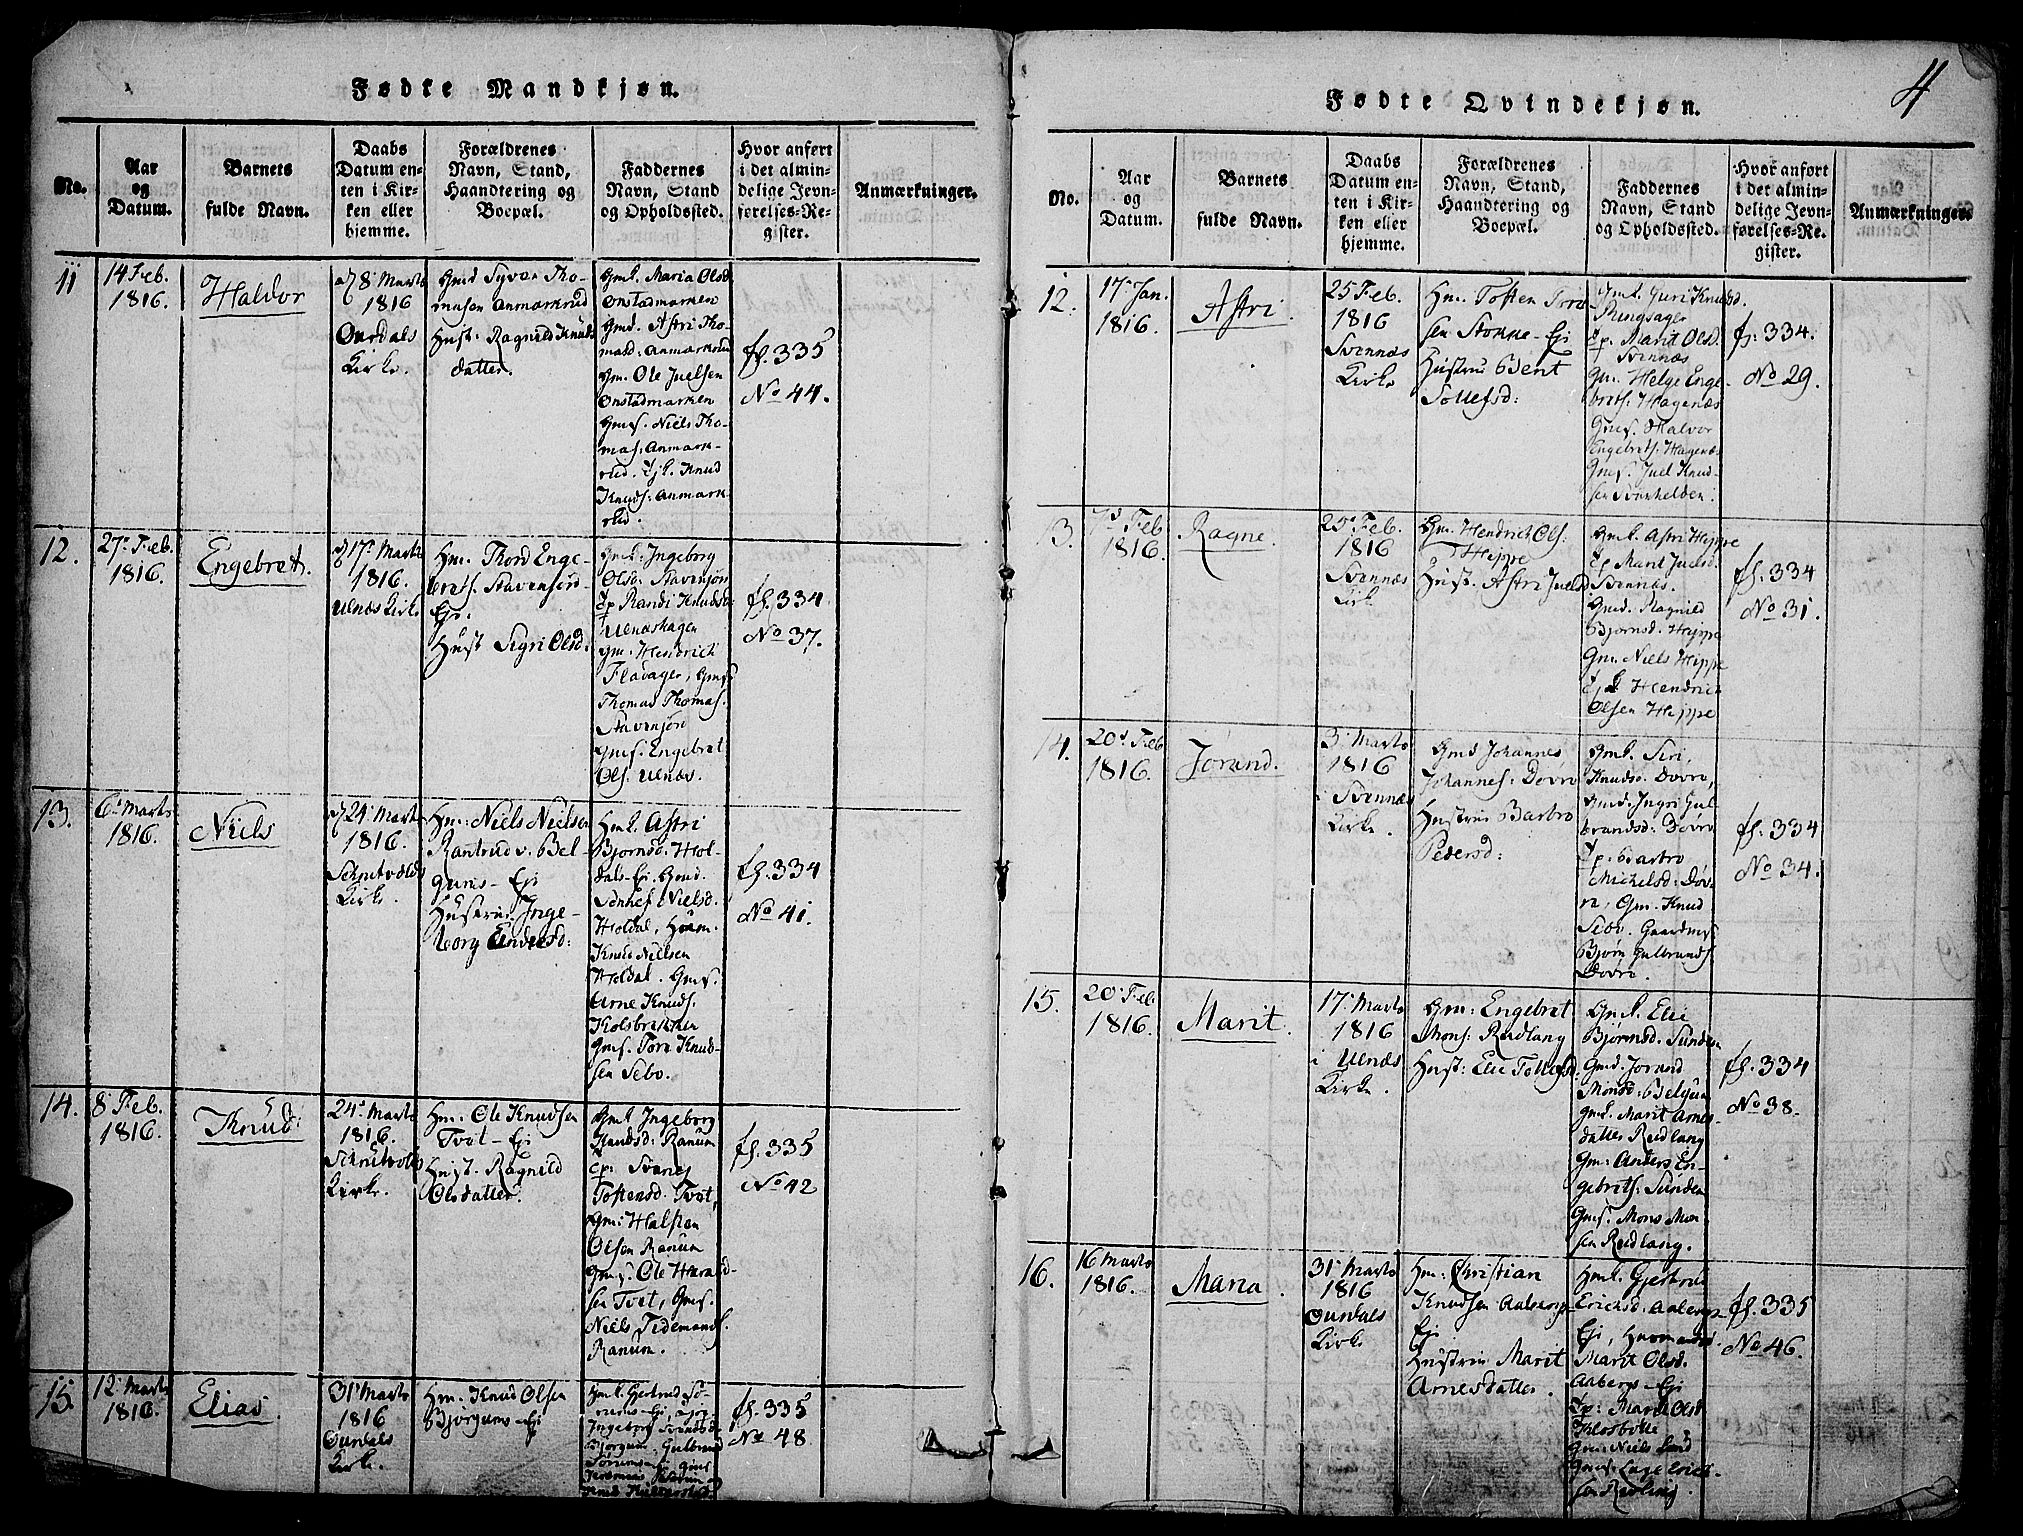 Fødte Mandkjøn.
No.
Aar
og
Datum.
Barnets
fulde Navn.
Daabs
Datum en-
ten i Kir-
ken eller
hjemme.
Forældrenes
Navn, Stand,
Haandtering og
Boepæl.
Faddernes
Navn, Stand
og Opholdssted.
Hvor anført
i det almin-
delige Jevn-
førelses-Re-
gister.
Anmærkninger.
11
14 Feb.
1816.
Haldor
8 Marts
1816
Ourdals
Kirke.
Gmd Syver Tho-
masen Anmarkrud
Hust: Ragnild Knuds
datter.
Gmk. Maria Olsd.
Onstadmarken
Gmd. Astri Tho-
masd: Anmarkrud
Gm. Ole Juelsen
Onstadmarken
Gms. Niels Tho-
mas: Anmark-
rud. Knud
Knuds: Anmark-
rud.
fl. 335
No 44.
12.
27de Feb.
1816.
Engebret.
17. Marts
1816.
Ulnæs Kirke
Gm. Thord Enge-
brets. Stavensjord
Eje.
Hust Sigri Olsd.
Gmd. Ingeborg
Olsd: Stavensjon
Ep Randi Knudsd:
Ulnæshagen
Gm. Hendrich
Flavager, Gms.
Thomas Thomas.
Stavensjon
Gms. Engebret
Ols. Ulnæs.
fl. 334
No 37.
13.
6. Marts
1816.
Niels
24. Marts
1816.
Skrutvolds
Kirke.
Hm: Niels Nielsen
Rantrud v. Bel-
gums- Eje
Hustrue Inge-
borg Endresd:
Hmk. Astri
Bjornsd. Hol-
dals-Eje. Gmd.
Sønnef Nielsd.
Holdal, Huum.
Knud Nielsen
Holdal. Gms.
Arne Knuds.
Kolsbrekken
Gms. Tore Knud-
sen Sebo.
fl. 334
No 41.
14.
8. Feb.
1816.
Knud
24. Marts
1816.
Skrutvolds
Kirke.
Hm. Ole Knudsen
Tvot - Eje
Hust. Ragnild
Olsdatter.
Gmk Ingeborg
Knudsd: Ranum
Ep. Svanes
Tostensd. Tvot,
Gm: Halsten
Olsen Ranum
Gms. Ole Harald-
sen Tvet, Gms.
Niels Tidemands.
Ranum.
fl. 335
No 42
15.
12. Marts
1816.
Elias
31. Marts
1816
Ourdals
Kirke.
Hm. Knud Olsen
Bjorgums-Eje
Hmk. Gjertrud Sø-
rens-Eje,
Ingeborg Svendsd.
Bjorgum, Gulbrand
fl. 335
No 48
Fødte Qvindekjøn.
4
No.
Aar
og
Datum.
Barnets
fulde Navn.
Daabs
Datum en-
ten i Kir-
ken eller
hjemme.
Forældrenes
Navn, Stand,
Haandtering og
Boepæl.
Faddernes
Navn, Stand
og Opholdssted.
Hvor anført
i det almin-
delige Jevn-
førelses-Re-
gister.
Anmærkninger.
12.
17. Jan.
1816.
Astri
25 Feb.
1816
Svennæs
Kirke
Hm. Tosten Tore
sen Stokke-Eje
Hustrue Berit
Tollefsd:
Gmk. Guri Knudsd.
Ringsager
Ep. Marit Olsd.
Svennæs
Gm. Helge Enge-
brets: Hagenæs
Gms. Halvor
Engebrets. Hagenæs
Gms. Juel Knud-
sen
fl. 334.
No 29.
13.
7d Feb
1816.
Ragne.
25. Feb.
1816
Svennæs
Kirke
Gm. Hendrich Ols.
Heppe
Hust. Astri Juelsd
Gmk. Astri Heppe
Ep Marit Juelsd.
Svennæs.
Gmd. Ragnild
Bjornsd. Heppe
Gm. Niels Heppe
Hendrich
Olsen Heppe
fl. 334
No 31.
14.
20d Feb
1816.
Jorand.
3. Marts
1816
i Svennæs
Kirke.
Gmd Johannes
Johannes: Dovre
Hustrue Barbro
Pedersd:
Gmk. Siri
Knudsd. Dovre,
Gmd. Ingri Gul
brandsd: Dovre
Ep. Barbro
Michelsd: Dov-
re, Gm. Knud
Sebo. Gaardms.
Bjørn Gulbrands.
Dovre.
fl. 334
No 34.
15.
20. Feb.
1816.
Marit.
17. Marts
1816
i Ulnæs
Kirke
Gm: Engebret
Mons: Rudlang
Hust: Elie Tollefsd:
Gmk. Elie
Bjørnsd. Sunden
Gmd. Jorand
Monsd: Belgum
Gmk. Marit Arnes-
datter Rudlang
Gm: Anders En-
gebrets: Sunden
Gms. Mons Mon-
sen Rudlang.
fl. 334
No 38.
16.
16 Marts
1816.
Maria
31. Marts
1816
Ourdals
Kirke
Hm. Christian
Knudsen Aabergs-
Eje
Hustrue Marit
Arnesdatter.
Hmk. Gjertrud
Erichsd: Aabergs-
Eje, Huusmandsd.
Marit Olsd.
Aabergs-Eje
Ep: Marit Olsd
Klosbølle
Gm: Niels Lund
sen Rudling
fl. 335
No 46.